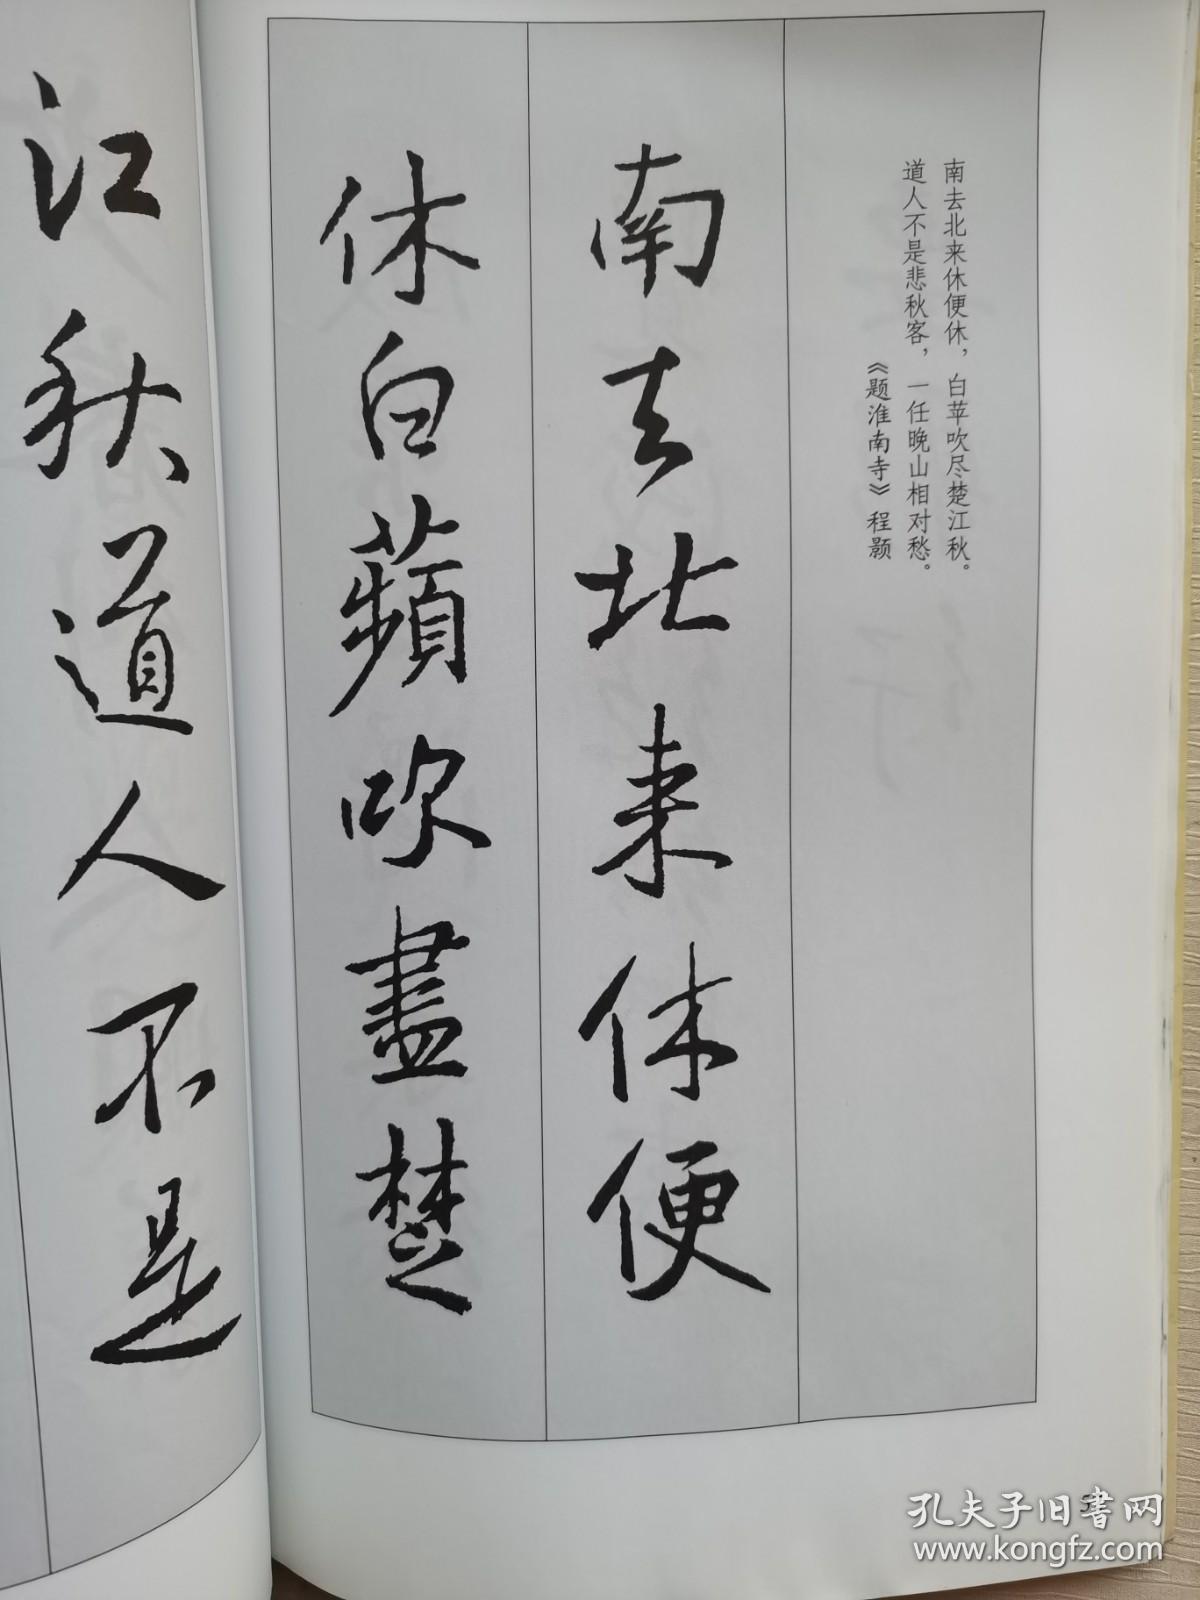 南去北来休便休，白苹吹尽楚江秋。
道人不是悲秋客，一任晚山相对愁。
《题淮南寺》程颢
南去北来休便
休白蘋吹盡楚
江秋道人不是
孔夫子旧书网
www.kongfz.com